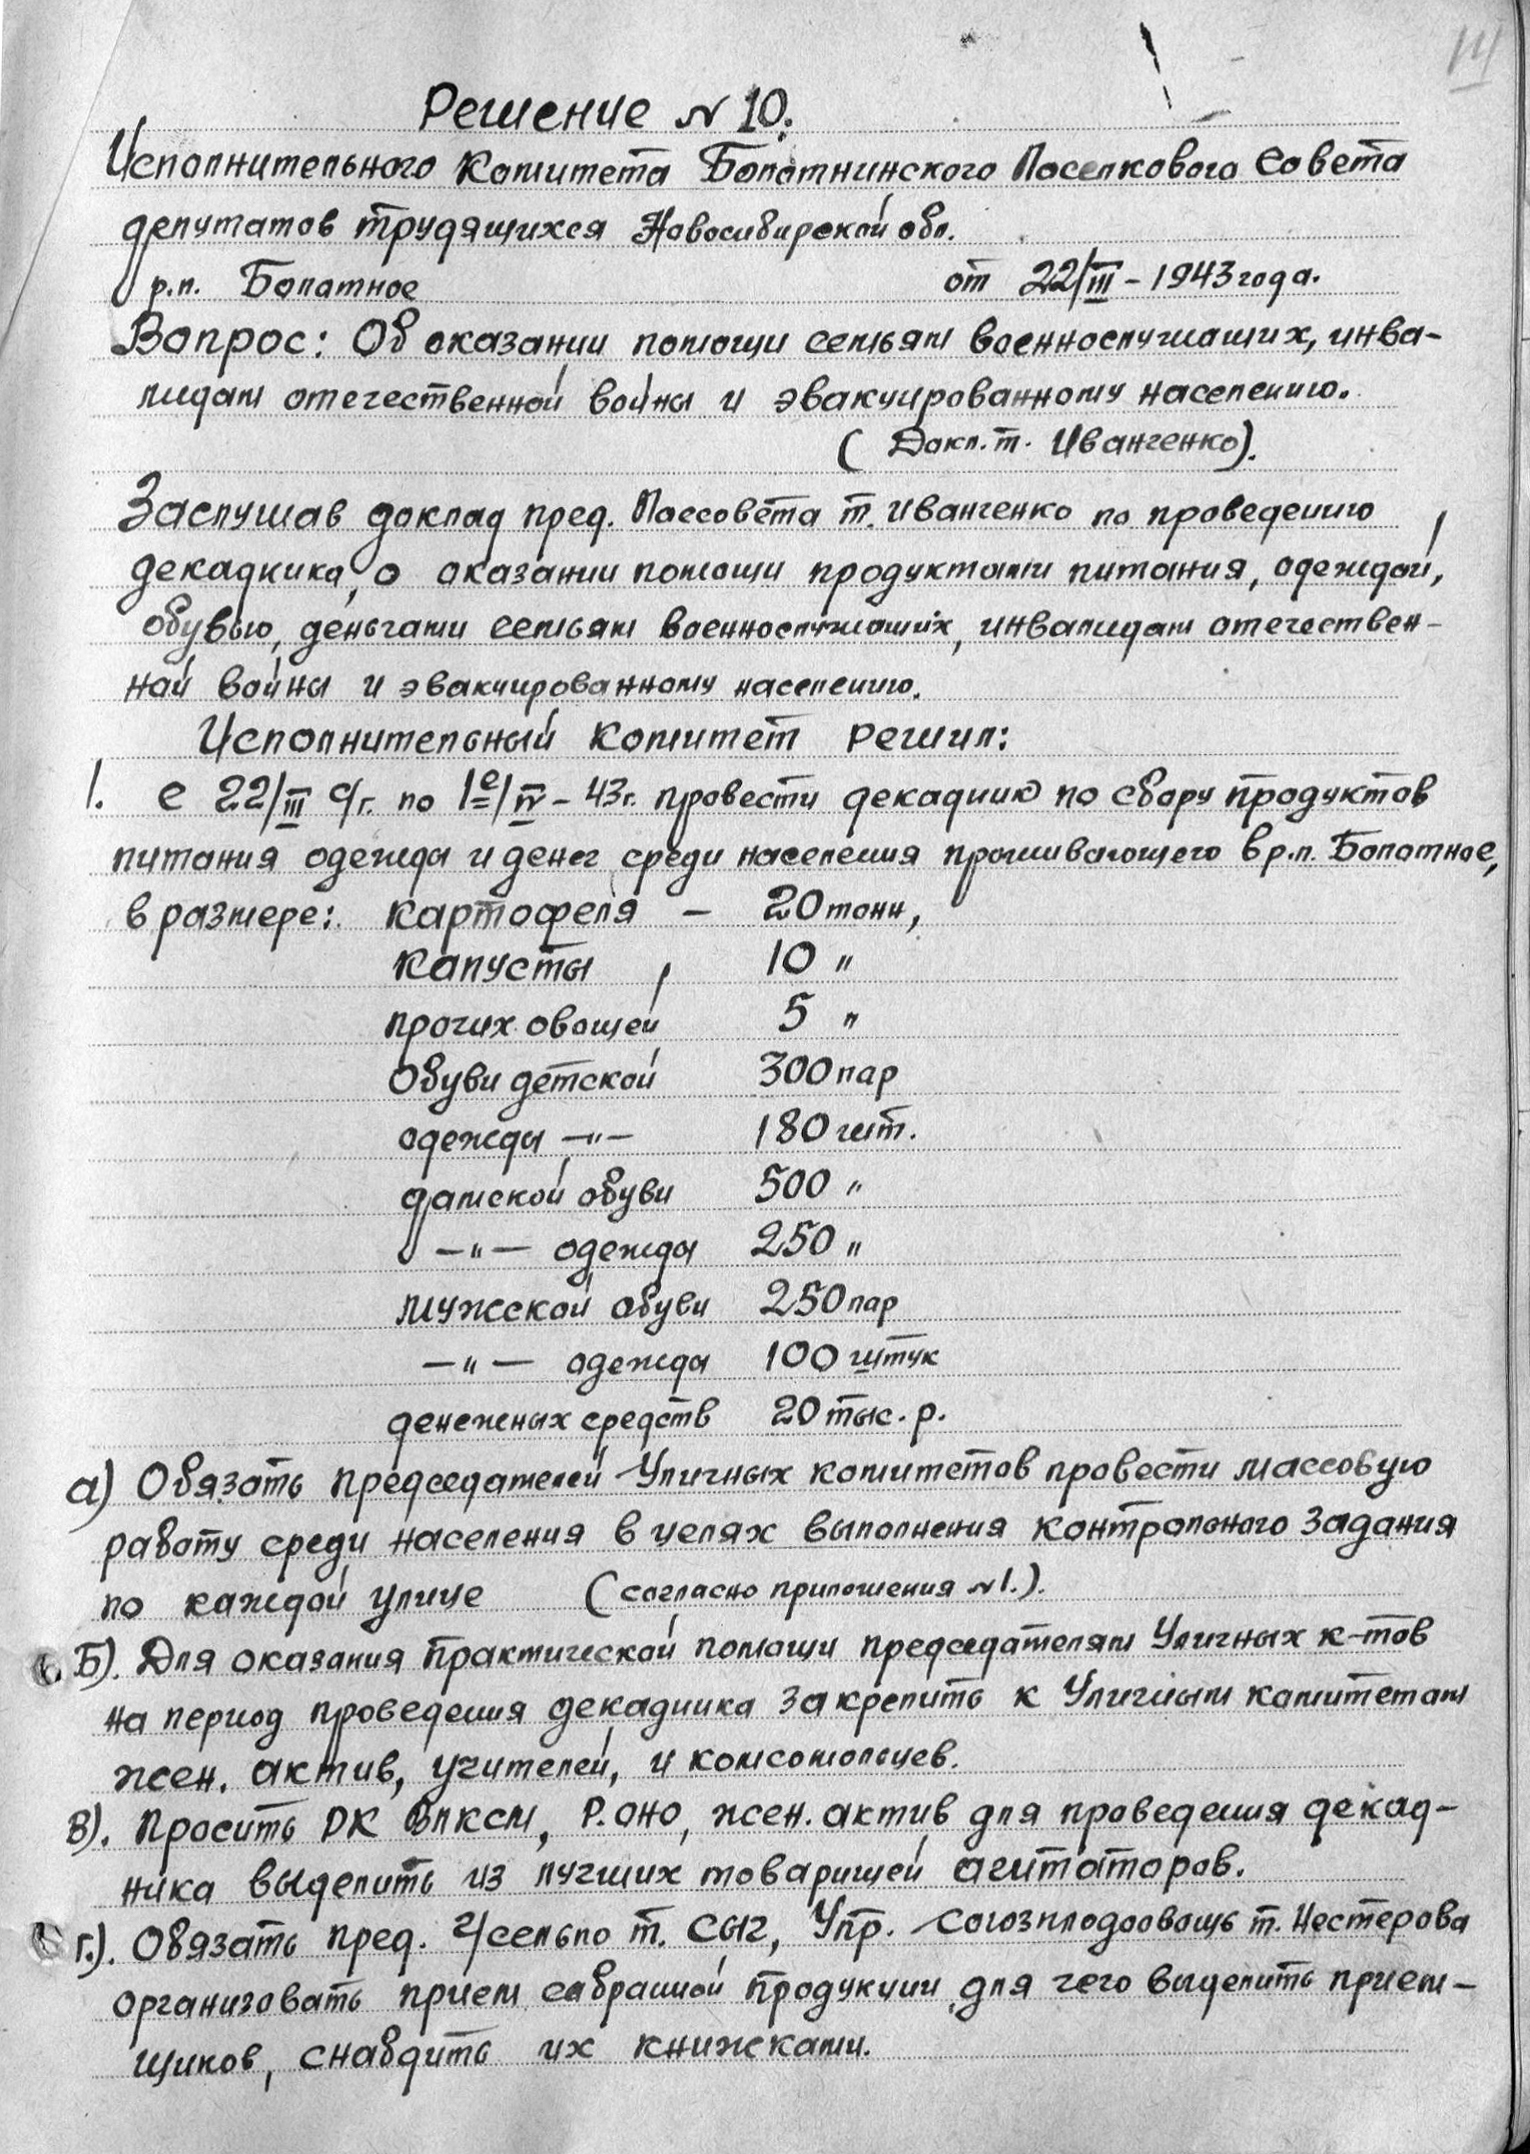 Решение № 10.
Исполнительного Комитета Болотнинского Поселкового Совета
депутатов трудящихся Новосибирской обл.
р.п. Болотное от 22/III – 1943 года.
Вопрос: Об оказании помощи семьям военнослужащих, инва-
лидам отечественной войны и эвакуированному населению.
(Докл. т. Иванченко).
Заслушав доклад пред. Поссовета т. Иванченко по проведению
декадника, о оказании помощи продуктами питания, одеждой,
обувью, деньгами семьям военнослужащих, инвалидам отечествен-
ной войны и эвакуированному населению.
Исполнительный комитет решил:
1. С 22/III с/г. по 1е/IV – 43г. провести декадник по сбору продуктов
питания одежды и денег среди населения проживающего в р.п. Болотное,
в размере: картофеля – 20 тонн,
капусты 10 "
прочих овощей 5 "
Обуви детской 300 пар
одежды –"– 180 шт.
дамской обуви 500 "
–"– одежды 250 "
мужской обуви 250 пар
–"– одежды 100 штук
денежных средств 20 тыс. р.
а) Обязать председателей Уличных комитетов провести массовую
работу среди населения в целях выполнения контрольного задания
по каждой улице (согласно приложения №1.).
Б). Для оказания практической помощи председателям Уличных к-тов
на период проведения декадника закрепить к Уличным комитетам
жен. актив, учителей, и комсомольцев.
В). Просить РК ВЛКСМ, Р.ОНО, жен. актив для проведения декад-
ника выделить из лучших товарищей агитаторов.
Г.). Обязать пред. Усельпо т. Сыч, Упр. Союзплодоовощь т. Нестерова
организовать прием собранной продукции, для чего выделить прием-
щиков, снабдить их книжками.